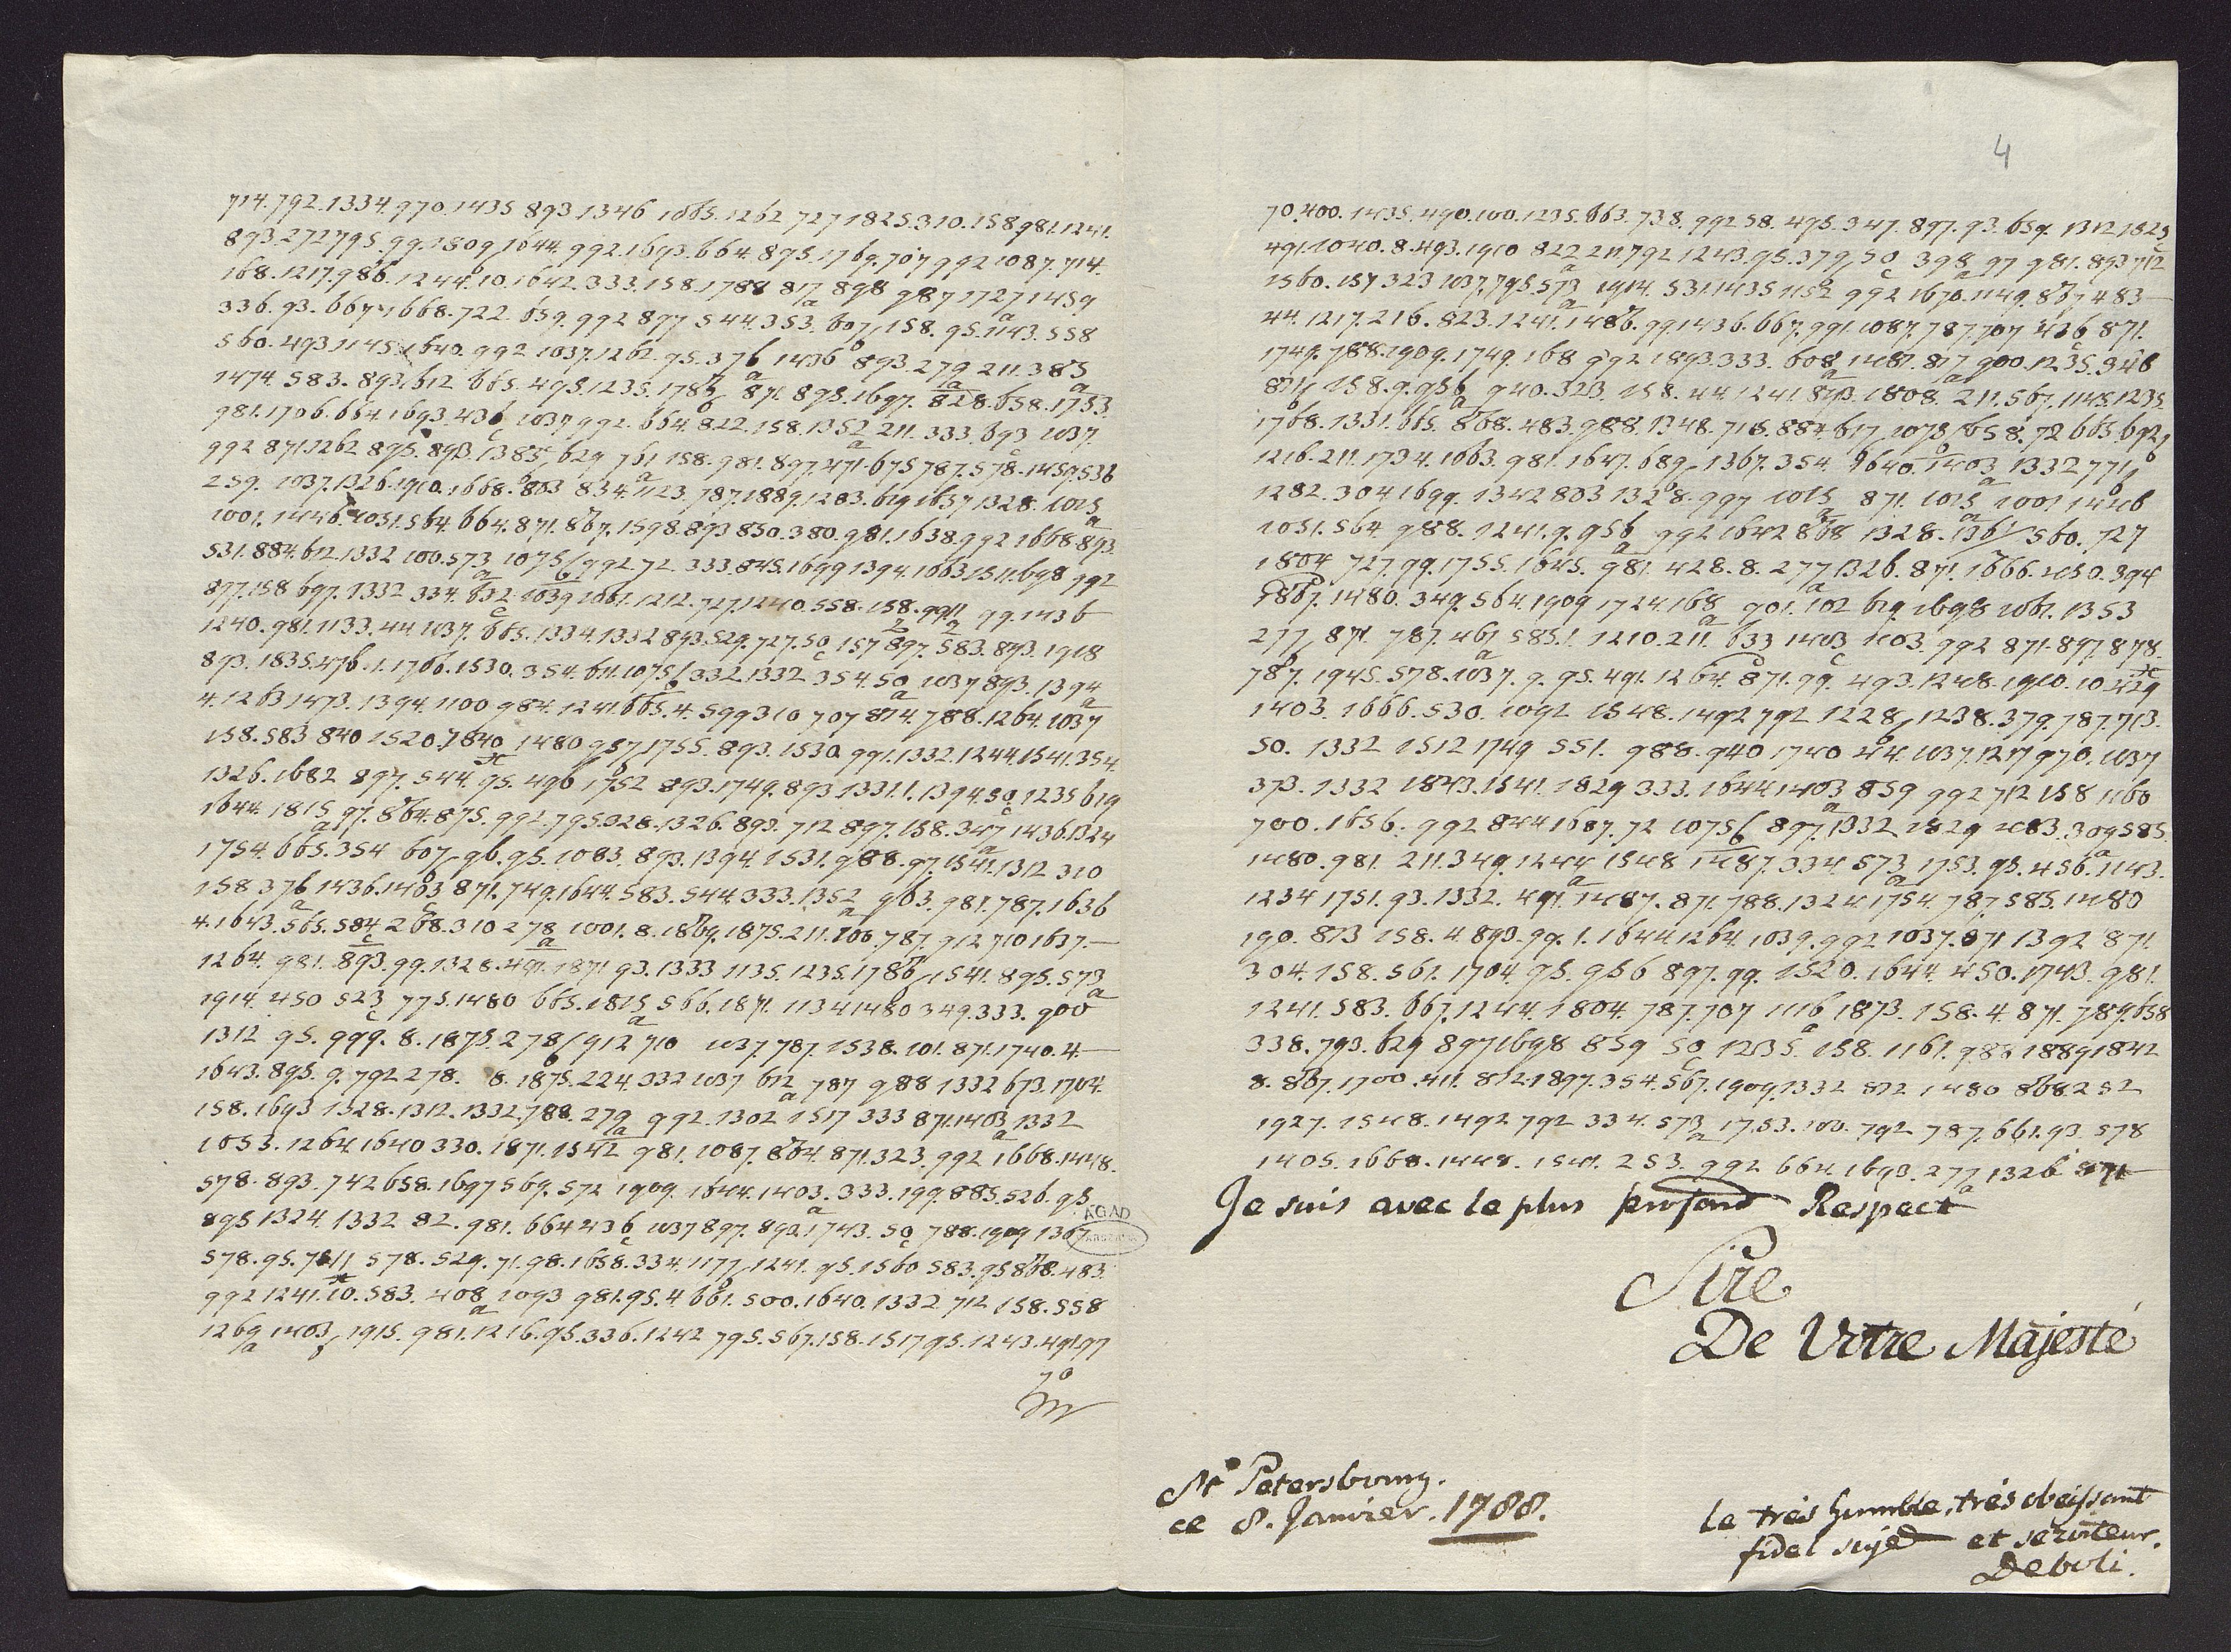 714.792.1334.970.1435 893 1346 1665.1262 727 1825.310.158 981.1241.
893.272 795.99.1809 1644.992.1693.664.895.1769.707 992 1087.714.
168.1217.986.1244.10.1642.333.158.1788 817 898 987 1727 1459
336.93.667.1668.722.659.992 897 544.353.607/158.95.1143.558
560.493.1145.1640.992 1037.1262.95.376 1436 893.279 211.385
1474.583.893.612 665.495.1235.1786 871 895.1697.828.658.1753.
981.1706.664.1693.436 1037 992.664.822.158.1352 211.333.693 1037.
992 871.1262 895.893.1385/629 761 158.981.897.471.675 787.578.1459.536
259.1037.1326.1910.1668.803 834.1123.787.1889.1203.619 1657 1328.1015
1001.1446.1051.564.664.871.867.1598.893 850.380.981.1638.992 1668.893.
531.884.612.1332 100.573 1075/992 72.333.845.1699 1394.1063.1511.698 992
897.158 697.1332 334.632.1039 1061.1212.727.1240.558.158.99 99.1436
1240.981.1133.44 1037.665.1334.1332 893.529.727.50.157 897.583.893.1918
893.1835.476.1.1766.1530.354.611.1075/332.1332 354.50 1037 893.1394
4.1263 1473.1394.1100 984.1241.665.4.599 310 707 814.788.1264.1037
158.583 840 1520.1840 1480 957 1755.893.1530.991.1332.1244 1541.354.
1326.1682 897.544.95.496 1752 893.1749.893 1331.1.1394.50.1235 619
1644.1815 97.864.875.992.795.328.1326.893.712 897.158.347 1436.1324
1754.665.354 607/96.95.1083.893.1394.1531.988.97.1541.1312 310
158 376 1436.1403 871.749.1644.583.544.333.1352 963.981.787.1636
4.1643.565.584 268.310 278 1001.8.1869.1875.211.700.787.912 710 1637.—
1264.981.893.99.1328.491.1871 93.1333 1135.1235.1786/1541.895.573
1914.450 523 775.1480 665.1815 566.1871.1134 1480 349.333.900
1312 95.999.8.1875 278/912 710 1037.787.1538.101.871.1740.4—
1643.895.9.792 278.8.1875.224.332 1037 612 787 988 1332 673.1704.
158.1693 1328.1312.1332.788.279 992.1302 1517 333 871.1403 1332
1053.1264.1640 330.1871.1542 981.1087.804.871.323.992 1668.1448.
578.893.742 658.1697 569.572 1909.1644.1403.333.199.885.526.95
895 1324.1332 82.981.664 436 1037 897.893.1743.50 788.1909 1367
578.95.7811 578.529.71.98.1658.334.1177/1241.95.1560 583.95 868.483.
992 1241.10.583.408 1093 981.95.4 661.500.1640.1332 712 158.558
1269 1403/1915.981.1216.95.336.1242 795.567.158.1517 95.1243.491.97
70
4
70.400.1435.490.100.1235.663.738.992 58.495.347.897.93.659.1312 1825
491.1040.8.493.1910 822 211 792 1243.95.379/50 398 97 981.893 712
1560.157 323 1037.795.573 1914.531.1435 1152 992 1670.1149.867 483—
44.1217.216.823.1241.1486.99 1436.667.991.1087.787.707 436 871.
1749.788.1909.1749.168 992 1893.333.608 1487.817 900.1235.346
871 158.9.956 940.323 158.44 1241 893.1808.211.567.1145.1235
1768.1331.665.868.483.988.1348.715.884.617 1075/658.72 665.692/
1216.211.1734.1063.981.1647.689/1367.354.1640.1403 1332 771
1282.304 1699.1342 803 1328.997 1015 871.1015 1001 1446
1051.564.988.1241.9.956 992 1642 868 1328.136/560.727
1804 727.99.1755.1645.981.428.8.277 1326.871.1666.1050.394
1867.1480.349.564.1909 1724.168 901.102 619.1698 1061.1353
277/871.787.461 585.1.1210.211.633 1403 1003.992 871.897.878.
787.1945.578.1037.9.95.491.1264.871.99.493.1248.1910.10.429
1403.1666.530.1092 1548.1492 792 1228/1238.379.787.713.
50.1332 1512 1749 551.988.940 1740 44.1037.1217 970.1037
373.1332 1843.1541.1829 333.1644 1403 859 992 712 158 1160
700.1656.992 844 1687.72 1075/897.1332 1829 1083.309 585
1480.981.211.349.1244 1548 1487.334 573 1753.95.456.1143.
1234 1751.93.1332.491.1487.871 788.1324.1754.787.585.1480
190.873 158.4 893.99.1.1644 1264.1039.992 1037.871 1392 871
304.158.561.1704.95.956 897.99.1520.1644.450.1743.981.
1241.583.667.1244.1804.787.707 1116 1873.158.4.871.789.658
338.793.629 897 1698 859 50 1235.158.1161.988 1889 1842
8.867.1700.411.812.1897.354.567.1909.1332 872 1480 868.252
1927.1548.1492 792 334.573 1753.100.792 787.661.93.578
1405.1668.1448.1541.253.992 664.1693.277 1326 871—
Je suis avec le plus profond Respect
Sire
De Votre Majesté
St Petersbourg.
ce 8. Janvier. 1788.
le très humble, très obeissant
fidel sujet et serviteur.
Deboli.